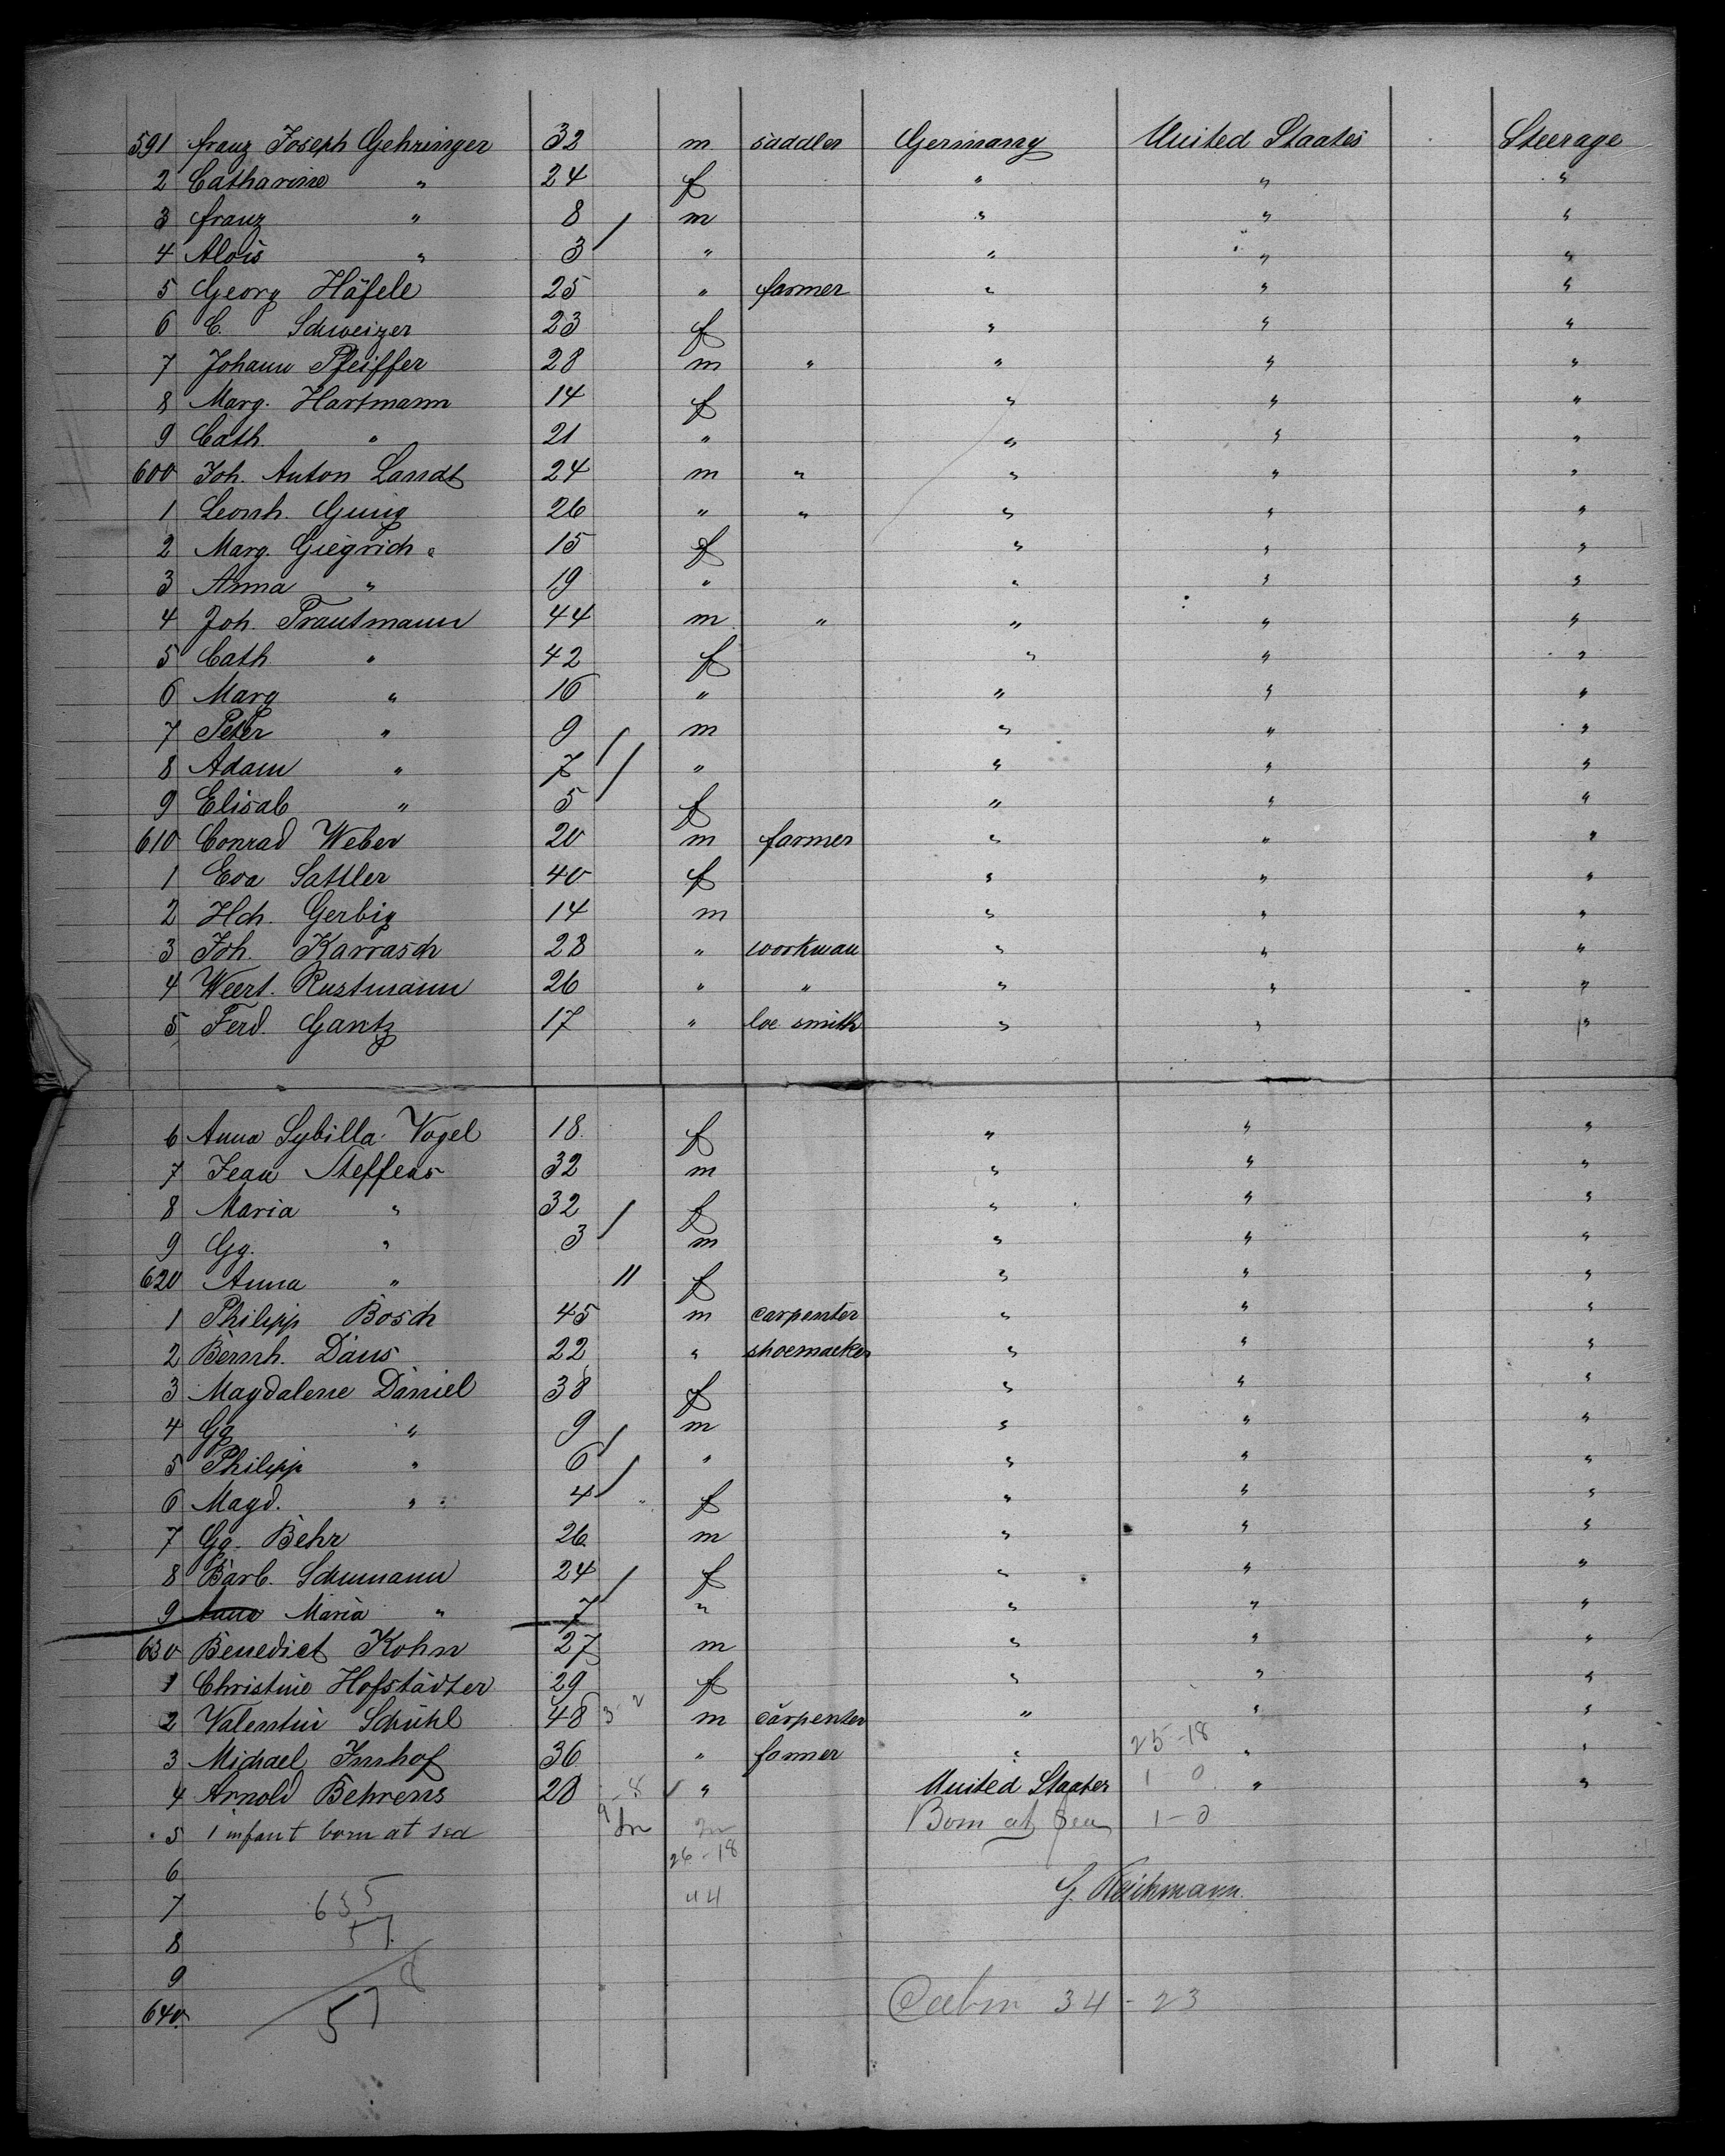 591 franz Joseph Gehringer 32 m saddler Germany United Staates Steerage
2 Catharine " 24 f " " "
3 franz " 8 m " " "
4 Alois " 3 " " " "
5 Georg Häfele 25 " farmer " " "
6 C. Schweizer 23 f " " "
7 Johann Pfeiffer 28 m " " " "
8 Marg. Hartmann 14 f " " "
9 Cath. " 21 " " " "
600 Joh. Anton Landt 24 m " " " "
1 Leonh. 26 " " " " "
2 Marg. Giegrich 15 f " " "
3 Anna " 19 " " " "
4 Joh. Trautmann 44 m " " " "
5 Cath " 42 f " " "
6 Marg " 16 " " " "
7 Peter " 9 m " " "
8 Adam " 7 " " " "
9 Elisab " 5 f " " "
610 Conrad Weber 20 m farmer " " "
1 Eva Sattler 40 f " " "
2 Hch. Gerbig 14 m " " "
3 Joh. Karrasch 28 " workman " " "
4 Weert. Rustmann 26 " " " " "
5 Ferd. Gantz 17 " loc smith " " "
6 Anna Sybilla Vogel 18 f " " "
7 Jean Steffens 32 m " " "
8 Maria " 32 f " " "
9 Gg. " 3 m " " "
620 Anna " 11 f " " "
1 Philipp Bosch 45 m carpenter " " "
2 Bernh. Daus 22 " shoemacker " " "
3 Magdalene Daniel 38 f " " "
4 Gg " 9 m " " "
5 Philipp " 6 " " " "
6 Magd. " 4 " f " " "
7 Gg. Behr 26 m " " "
8 Barb. Schumann 24 f " " "
9 Anna Maria " 7 " " " "
630 Benedict Kohn 27 m " " "
1 Christine Hofstädter 29 f " " "
2 Valentin Schühl 48 m carpenter " " "
3 Michael Imhof 36 " farmer " 25-18 " "
4 Arnold Behrens 28 " United Staates 1-0 " "
5 1 infant born at sea Born at Sea 1-0
6 26-18
7 635 44 G. Reichmann.
8 57
9 8
640 57 Cabin 34-23